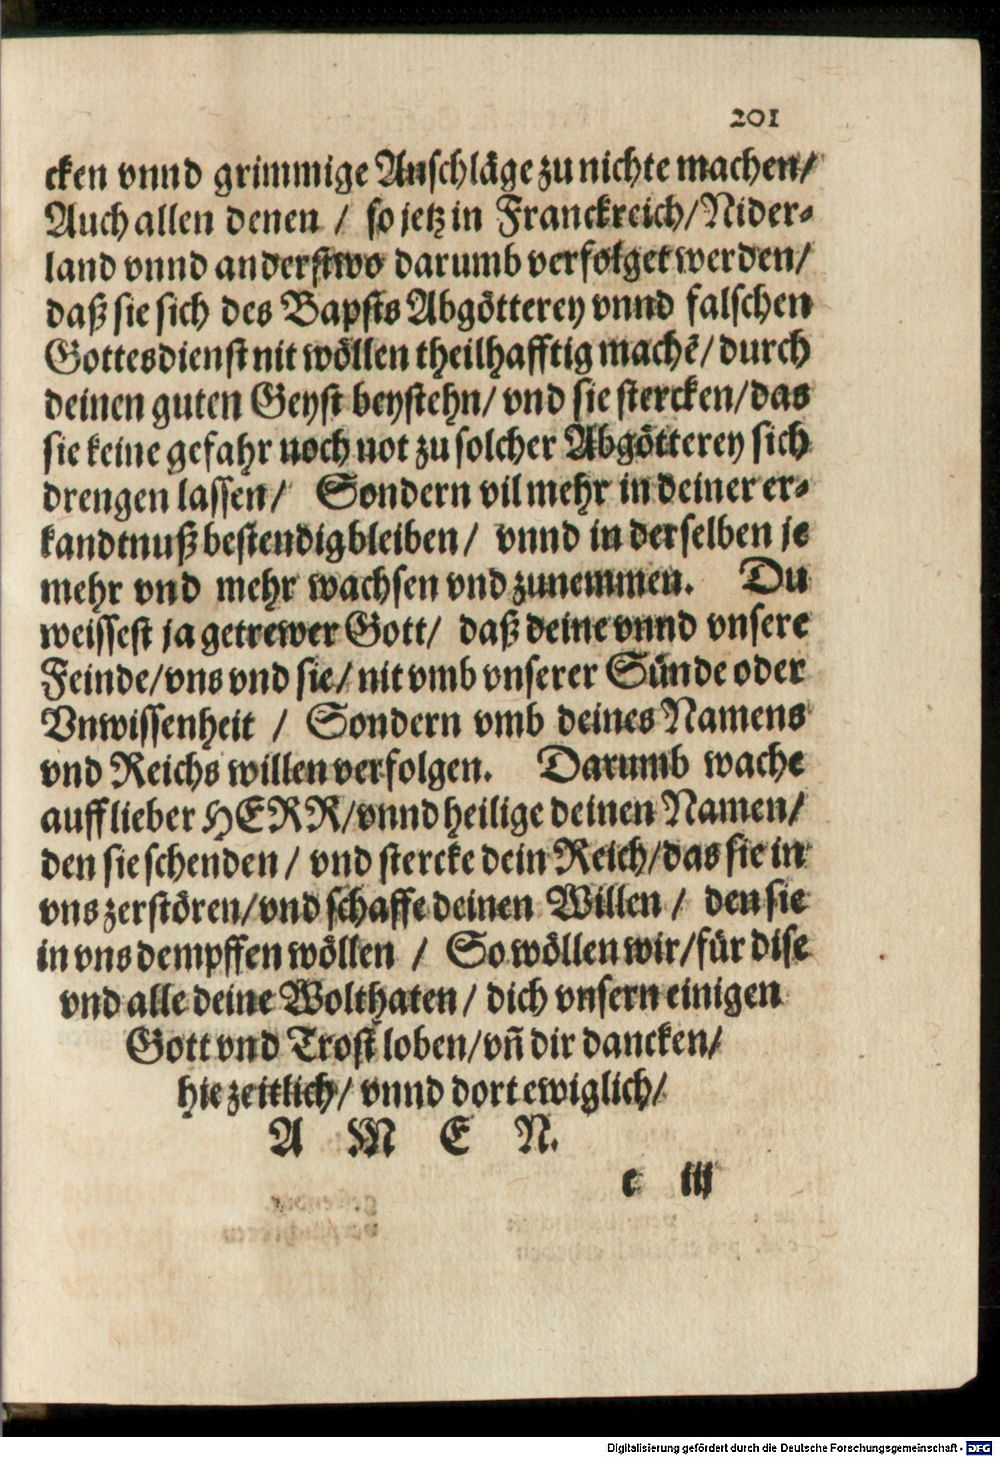 201
cken vnnd grimmige Anschläge zu nichte machen/
Auch allen denen / so jetz in Franckreich/Nider⸗
land vnnd anderstwo darumb verfolget werden/
daß sie sich des Bapsts Abgötterey vnnd falschen
Gottesdienst nit wöllen theilhafftig machē/durch
deinen guten Geyst beystehn/ vnd sie stercken/das
sie keine gefahr noch not zu solcher Abgötterey sich
drengen lassen/ Sondern vil mehr in deiner er⸗
kandtnuß bestendig bleiben/ vnnd in derselben je
mehr vnd mehr wachsen vnd zunemmen. Du
weissest ja getrewer Gott/ daß deine vnnd vnsere
Feinde/vns vnd sie/ nit vmb vnserer Sünde oder
Vnwissenheit / Sondern vmb deines Namens
vnd Reichs willen verfolgen. Darumb wache
auff lieber HERR/vnnd heilige deinen Namen/
den sie schenden / vnd stercke dein Reich/das sie in
vns zerstören/vnd schaffe deinen Willen / den sie
in vns dempffen wöllen / So wöllen wir/für dise
vnd alle deine Wolthaten/ dich vnsern einigen
Gott vnd Trost loben/vñ dir dancken/
hie zeitlich/ vnnd dort ewiglich/
A M E N.
c iij
Digitalisierung gefördert durch die Deutsche Forschungsgemeinschaft - DFG